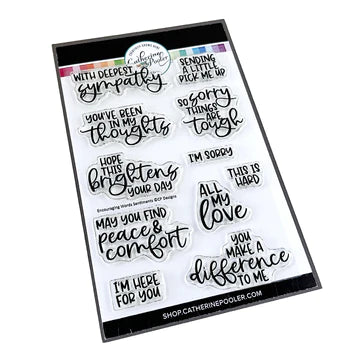 Catherine
Pooler
WITH DEEPEST
sympathy
SENDING
A LITTLE
PICK ME UP
YOU'VE BEEN
IN MY
thoughts
SO sorry
THINGS
ARE
tough
HOPE
THIS
brightens
YOUR DAY
I'M SORRY
THIS IS
HARD
Encouraging Words Sentiments ©CP Designs
ALL
MY
love
MAY YOU FIND
peace &
comfort
YOU
MAKE A
difference
TO ME
I'M HERE
FOR YOU
SHOP.CATHERINEPOOLER.COM